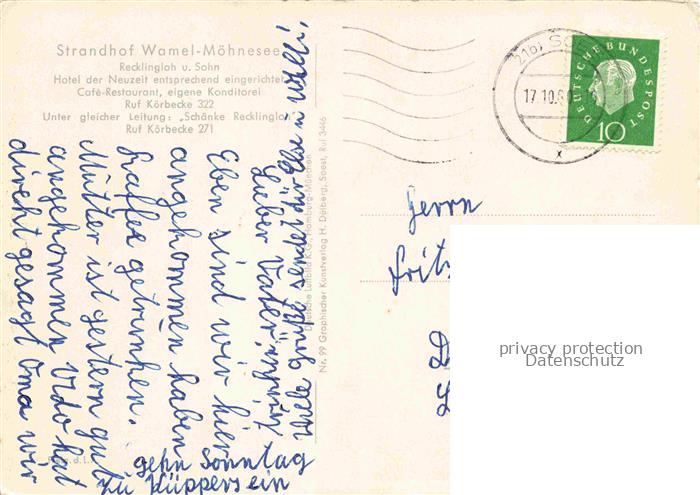 Strandhof Wamel-Möhnesee
Recklingloh u. Sohn
Hotel der Neuzeit entsprechend eingerichtet
Café-Restaurant, eigene Konditorei
Ruf Körbecke 322
Unter gleicher Leitung: „Schänke Recklingloh"
Ruf Körbecke 271
21b) SOE
17.10.60
DEUTSCHE BUNDESPOST
10
Lieber Vater,
Eben sind wir hier
angekommen haben
Kaffee getrunken.
Mutter ist gestern gut
angekommen Udo hat
direkt gesagt Oma wir
gehn Sonntag
zu Küppersein
viele Grüße sendet
Deutsche Luftbild K.G., Hamburg-München
Nr. 99 Graphischer Kunstverlag H. Dülberg, Soest, Ruf 3446
Herrn
Fritz
privacy protection
Datenschutz